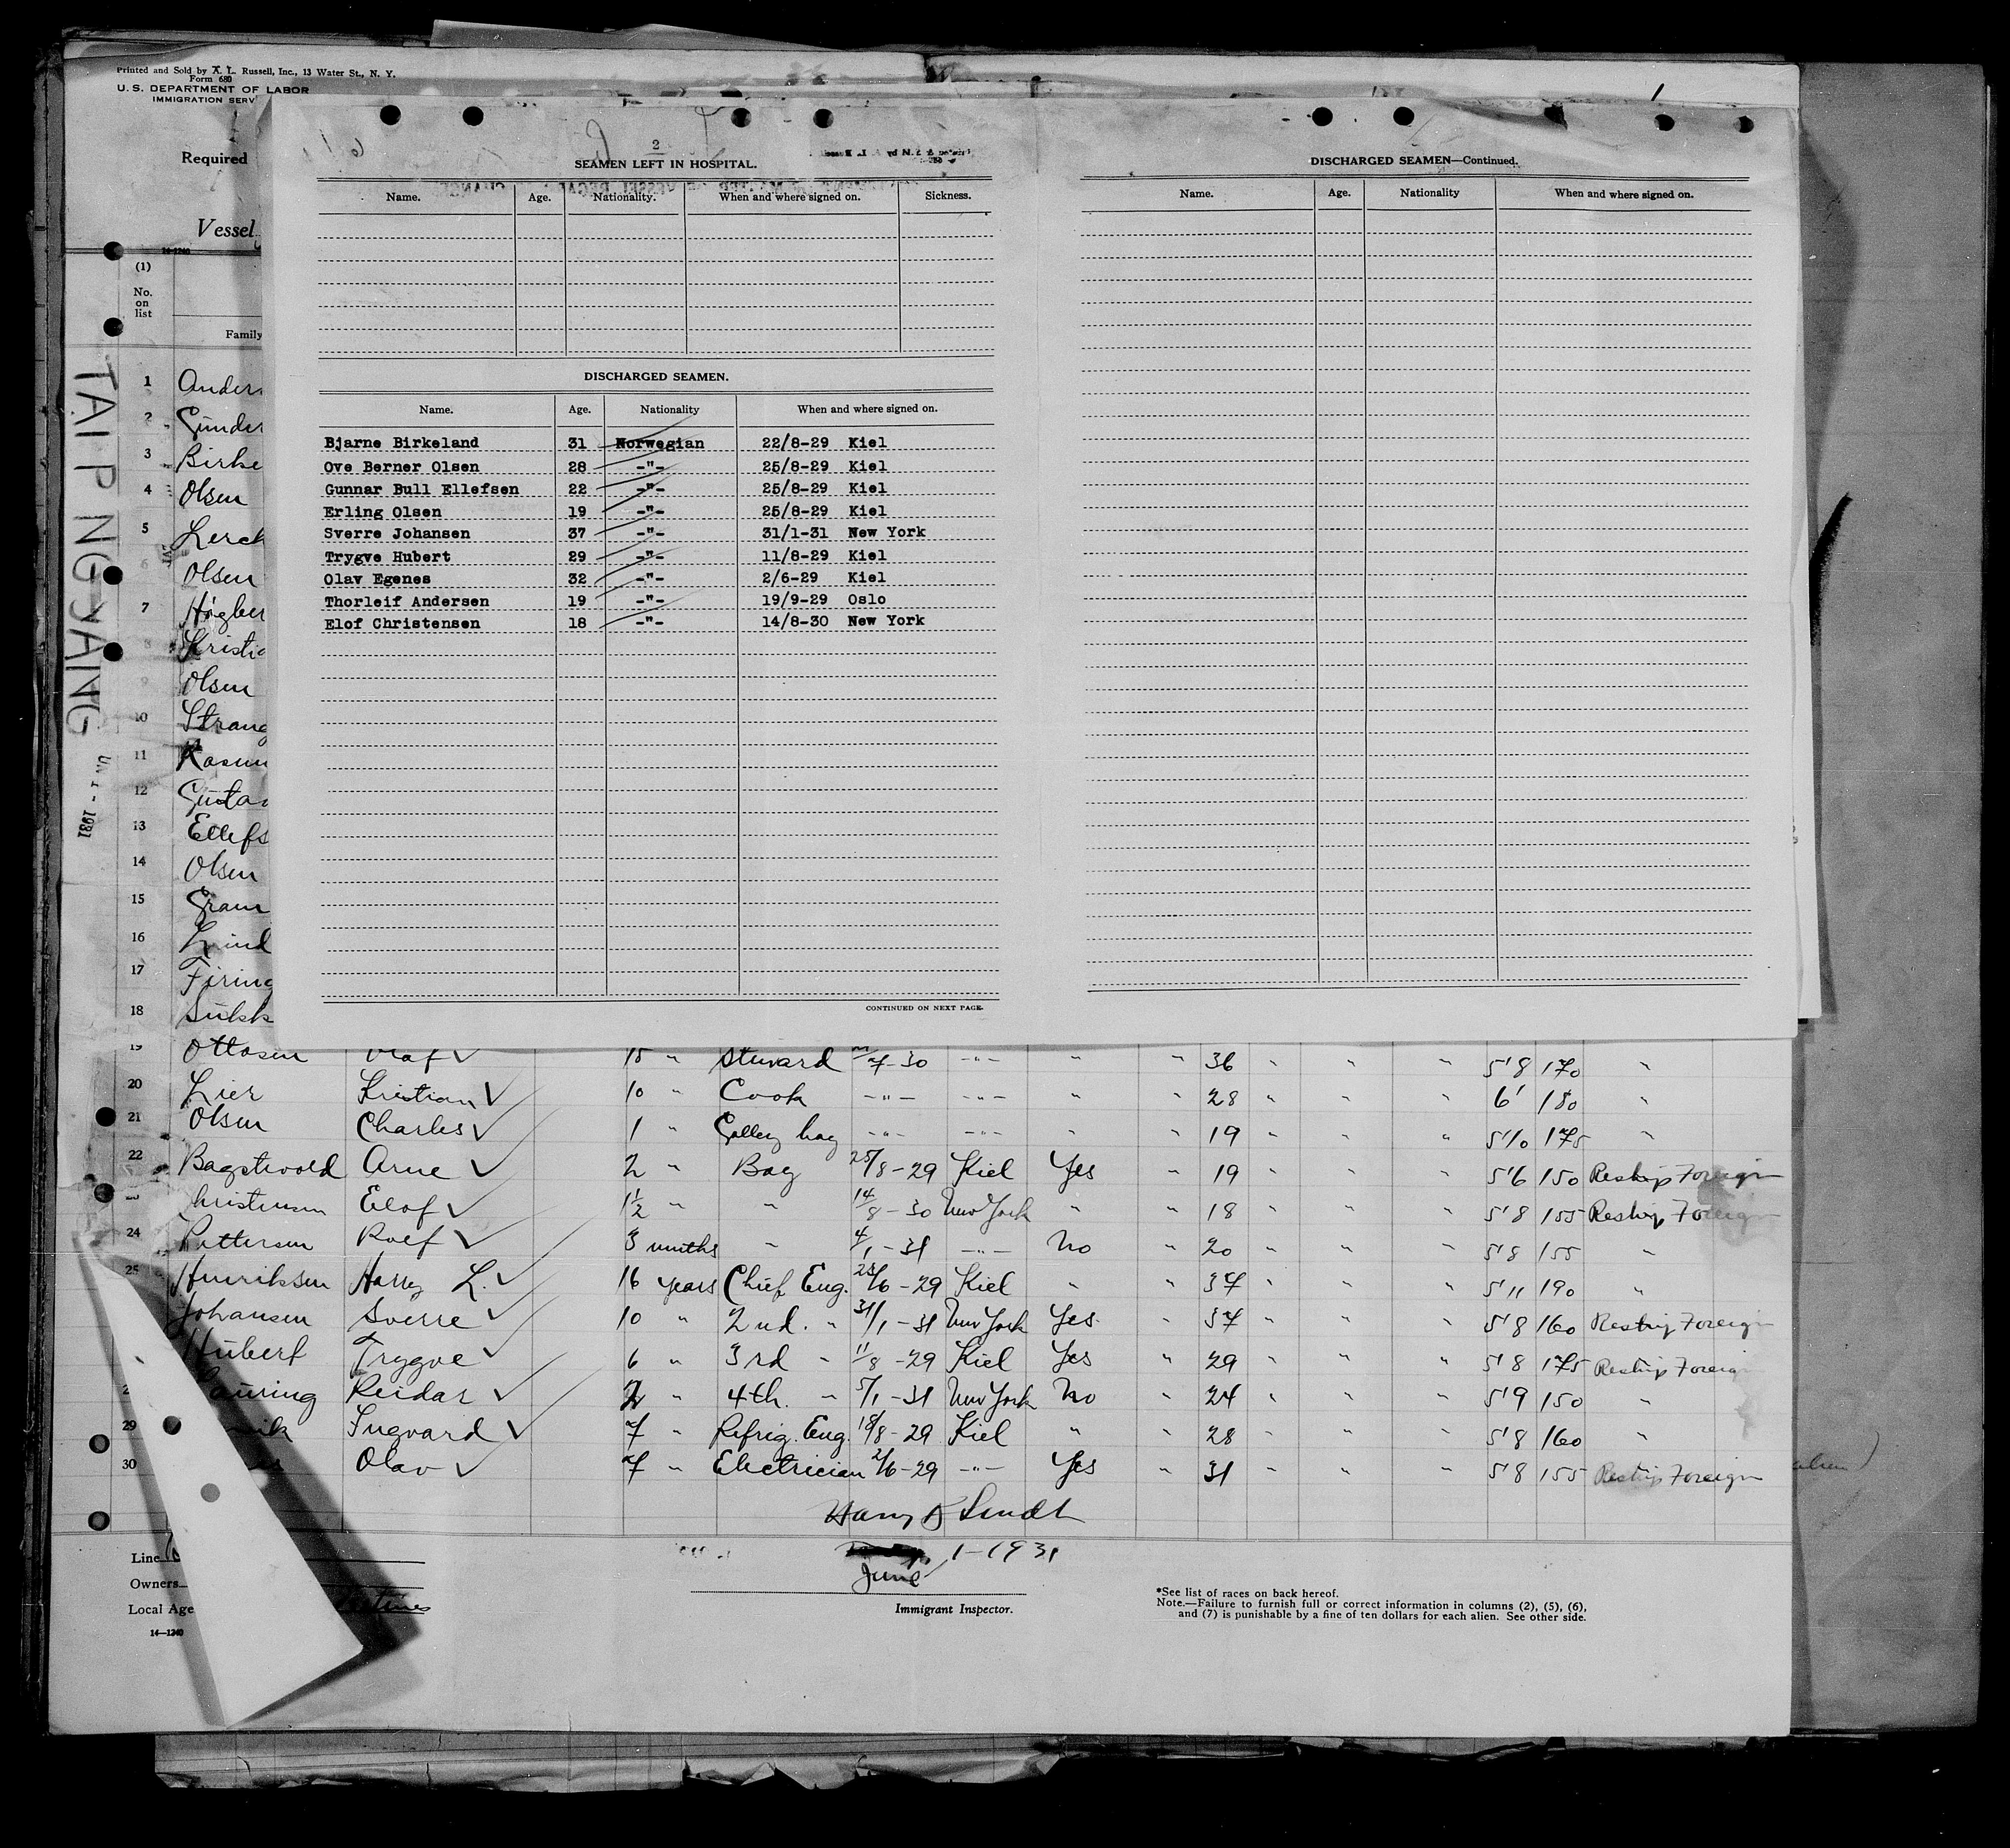 Printed and Sold by A. L. Russell, Inc., 13 Water St., N. Y.
Form 680
U. S. DEPARTMENT OF LABOR
IMMIGRATION SERV
Required
Vessel
14-1240
(1)
No.
on
list
Family
TAI PING YANG
- 1931
1 Anders
2 Gunder
3 Birke
4 Olsen
5 Lerch
6 Olsen
7 Høgber
8 Kristia
9 Olsen
10 Strang
11 Rasmu
12 Gustav
13 Ellefs
14 Olsen
15 Gram
16 Lind
17 Firing
18 Sukk
2
SEAMEN LEFT IN HOSPITAL.
Name. Age. Nationality. When and where signed on. Sickness.
DISCHARGED SEAMEN.
Name. Age. Nationality When and where signed on.
Bjarne Birkeland 31 Norwegian 22/8-29 Kiel
Ove Berner Olsen 28 -"- 25/8-29 Kiel
Gunnar Bull Ellefsen 22 -"- 25/8-29 Kiel
Erling Olsen 19 -"- 25/8-29 Kiel
Sverre Johansen 37 -"- 31/1-31 New York
Trygve Hubert 29 -"- 11/8-29 Kiel
Olav Egenes 32 -"- 2/6-29 Kiel
Thorleif Andersen 19 -"- 19/9-29 Oslo
Elof Christensen 18 -"- 14/8-30 New York
CONTINUED ON NEXT PAGE.
DISCHARGED SEAMEN—Continued.
Name. Age. Nationality When and where signed on.
19 Ottosen Olaf ✓ 15 " Steward 7-30 -"- " " 36 " " " 5'8 170 "
20 Lier Kristian ✓ 10 " Cook -"- -"- " " 28 " " " 6' 180 "
21 Olsen Charles ✓ 1 " Galley boy -"- -"- " " 19 " " " 5'10 175 "
22 Bagstevold Arne ✓ 2 " Boy 25/8-29 Kiel Yes " 19 " " " 5'6 150 Reship Foreign
hristensen Elof ✓ 1½ " " 14/8-30 New York " " 18 " " " 5'8 155 Reship Foreign
24 Pettersen Rolf ✓ 3 months " 4/1-31 -"- No " 20 " " " 5'8 155 "
25 Henriksen Harry L. ✓ 16 years Chief Eng. 28/6-29 Kiel " " 37 " " " 5'11 190 "
Johansen Sverre ✓ 10 " 2nd. " 31/1-31 New York Yes " 37 " " " 5'8 160 Reship Foreign
Hubert Trygve ✓ 6 " 3rd " 11/8-29 Kiel Yes " 29 " " " 5'8 175 Reship Foreign
auring Reidar ✓ 2 " 4th. " 5/1-31 New York No " 24 " " " 5'9 150 "
29 vik Ingvard ✓ 7 " Refrig. Eng. 18/8-29 Kiel " " 28 " " " 5'8 160 "
30 es Olav ✓ 7 " Electrician 2/6-29 -"- Yes " 31 " " " 5'8 155 Reship Foreign
Line
Owners
Local Age
14-1240
June 1-1931
Immigrant Inspector.
*See list of races on back hereof.
Note.—Failure to furnish full or correct information in columns (2), (5), (6),
and (7) is punishable by a fine of ten dollars for each alien. See other side.